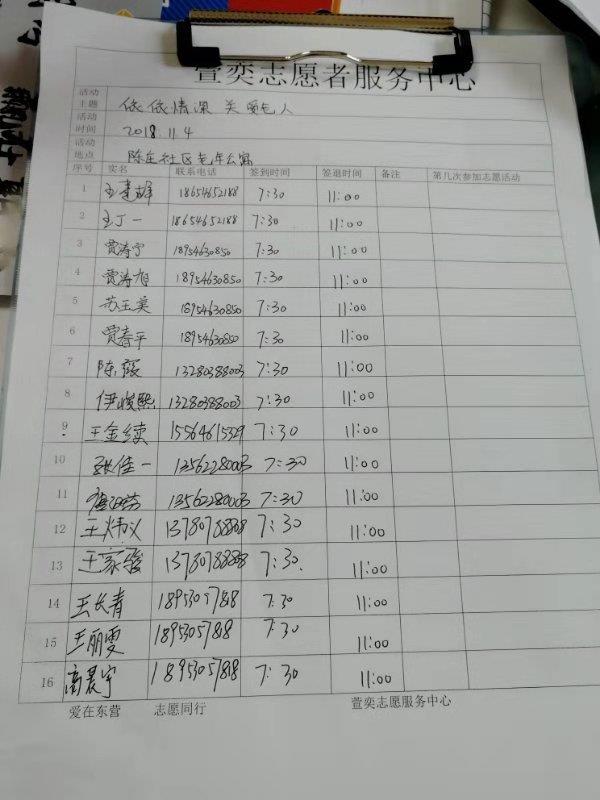 萱奕志愿者服务中心
活动主题 依依情深 关爱老人
活动时间 2018.11.4
活动地点 陈庄社区老年公寓
序号 实名 联系电话 签到时间 签退时间 备注 第几次参加志愿活动
1 王建雄 18654652188 7:30 11:00
2 王丁一 18654652188 7:30 11:00
3 贾涛宁 18954630850 7:30 11:00
4 贾涛旭 18954630850 7:30 11:00
5 苏玉英 18954630850 7:30 11:00
6 贾春平 18954630850 7:30 11:00
7 陈霞 13280388003 7:30 11:00
8 伊峻熙 13280388003 7:30 11:00
9 王金续 15564615329 7:30 11:00
10 张佳一 13562280003 7:30 11:00
11 13562280003 7:30 11:00
12 王炜义 13780788808 7:30 11:00
13 王家骏 7:30 11:00
14 王长青 18953057818 7:30 11:00
15 王丽雯 18953057818 7:30 11:00
16 高晨宇 18953057818 7:30 11:00
爱在东营 志愿同行 萱奕志愿服务中心